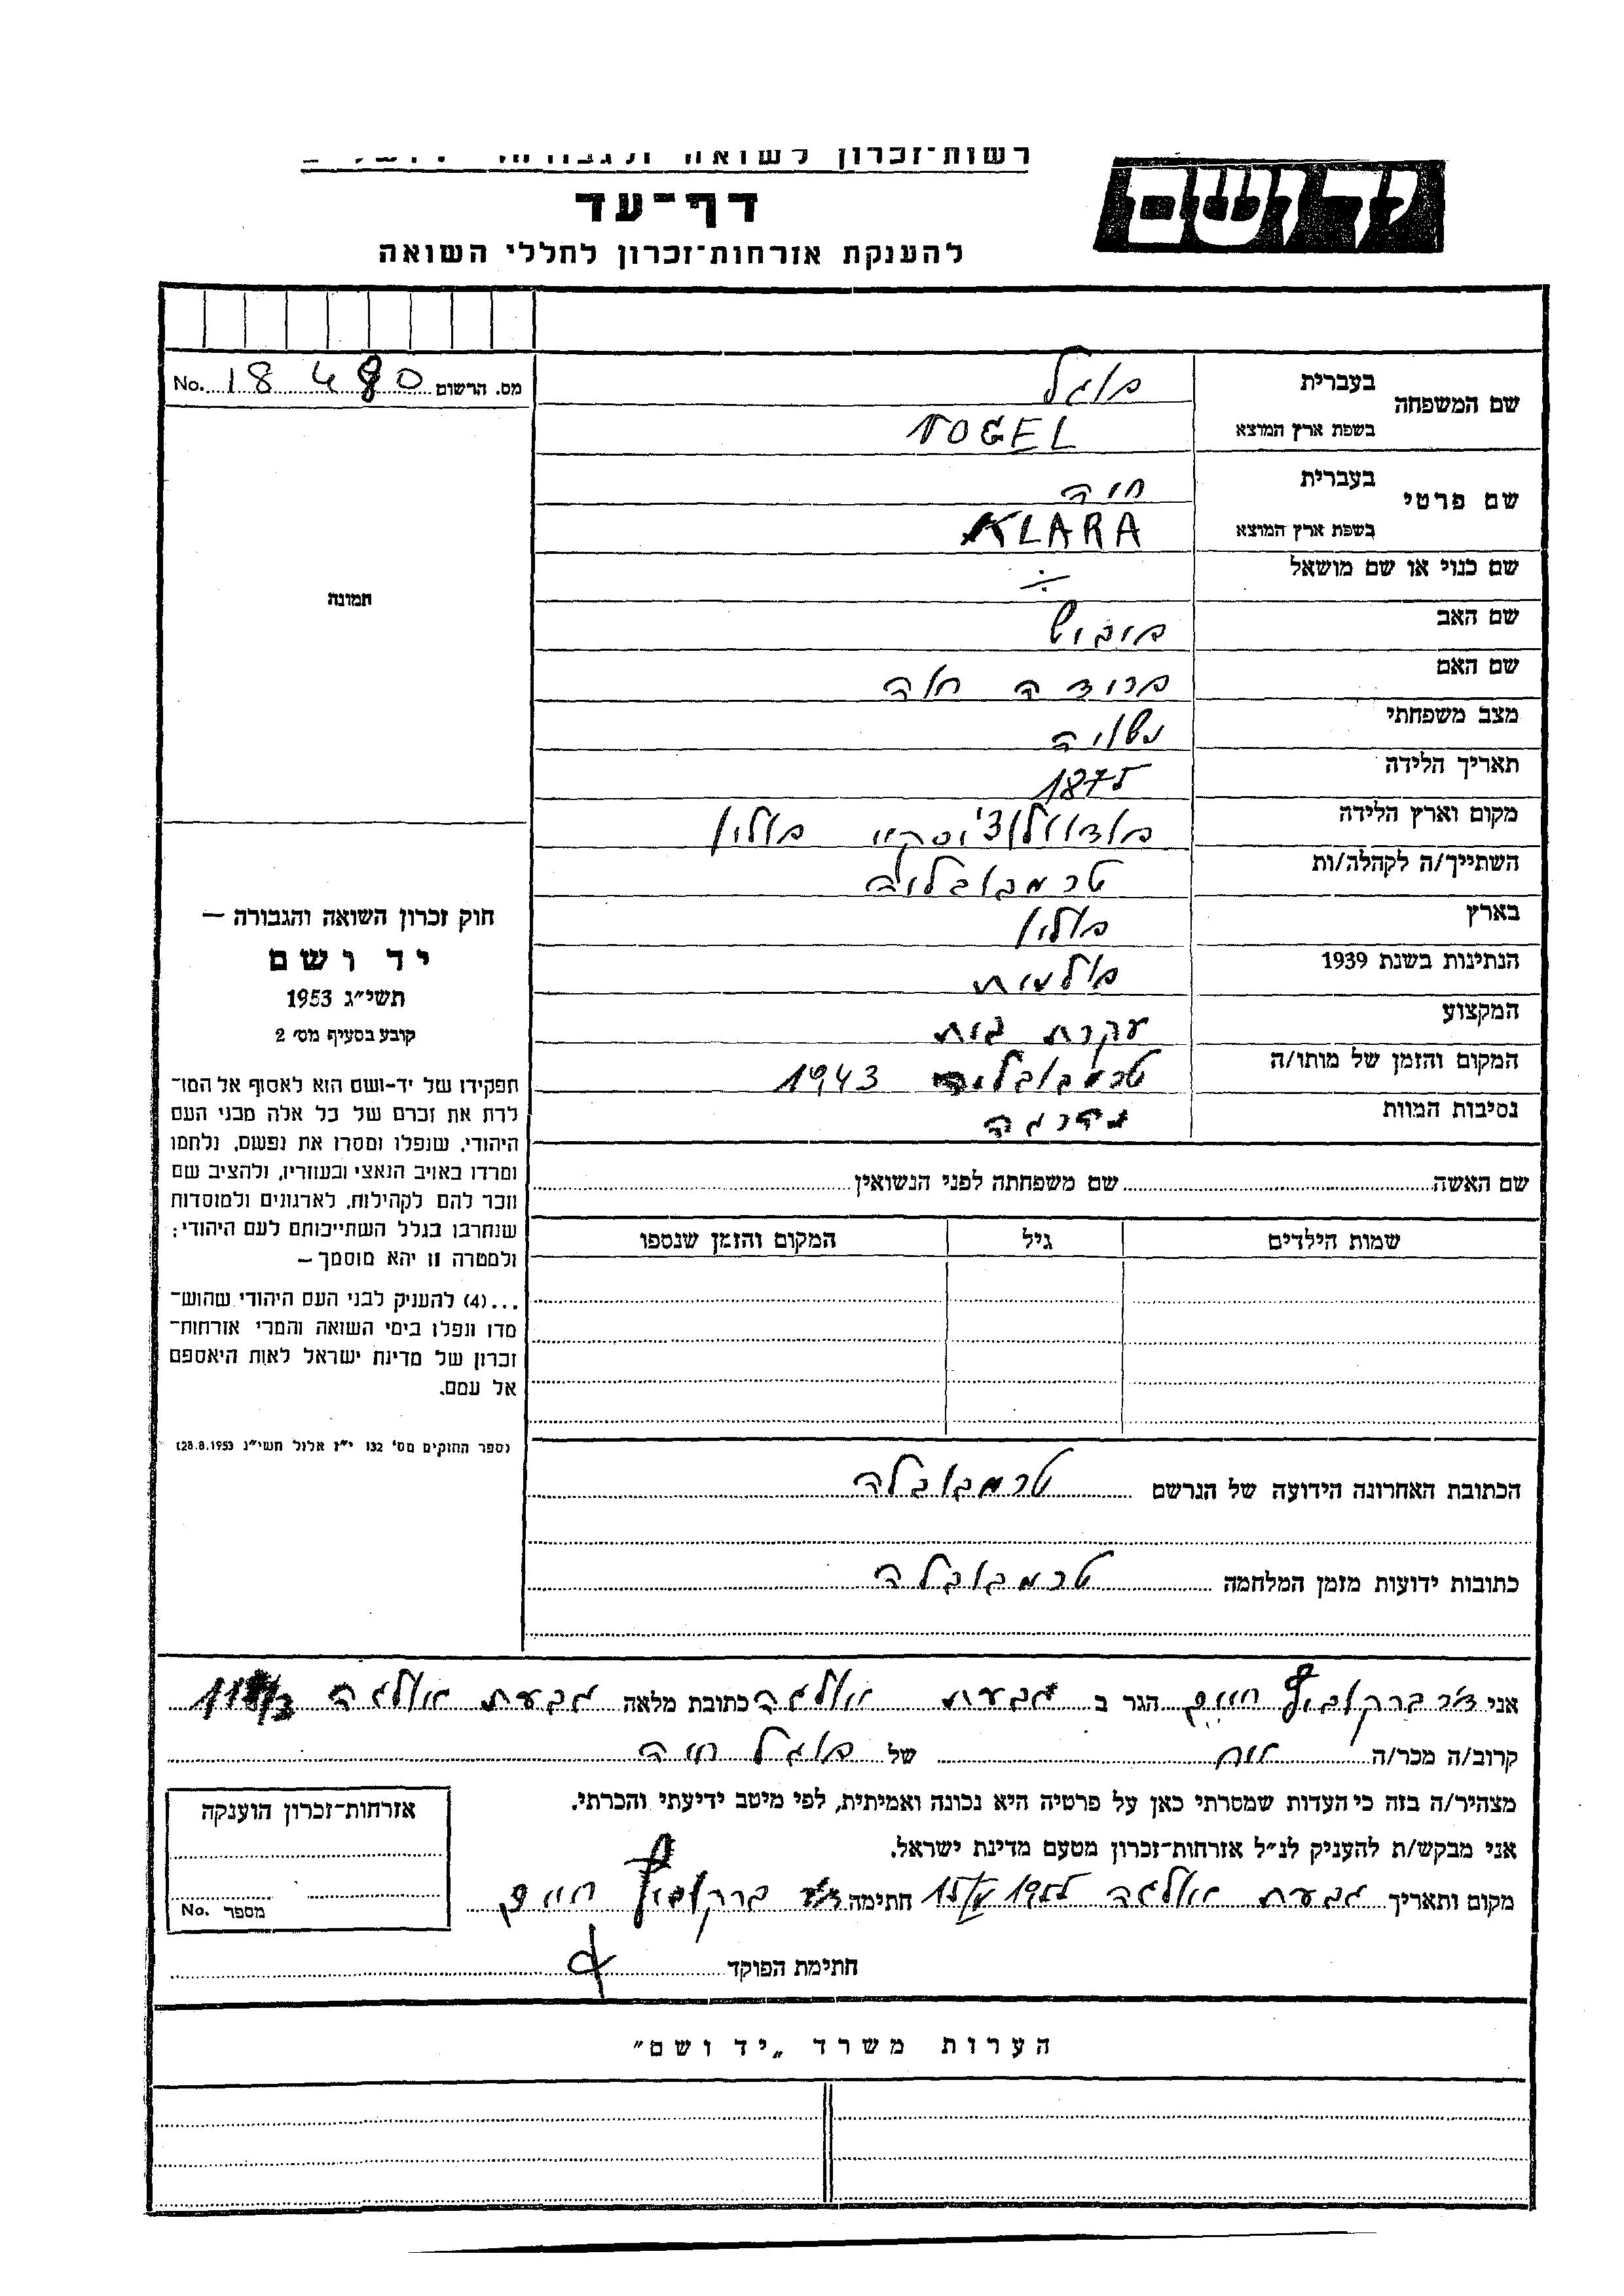 יד ושם
דף־עד
להענקת אזרחות־זכרון לחללי השואה
מס. הרשום 18 480 No.
שם המשפחה
בעברית פוגל
בשפת ארץ המוצא VOGEL
שם פרטי
בעברית חיה
בשפת ארץ המוצא KLARA
שם כנוי או שם מושאל
שם האב פייביש
שם האם פרידה חוה
מצב משפחתי נשויה
תאריך הלידה 1875
מקום וארץ הלידה פולין
השתייך/ה לקהלה/ות טרמבובליה
בארץ פולין
הנתינות בשנת 1939 פולנית
המקצוע עקרת בית
המקום והזמן של מותו/ה טרמבובליה 1943
נסיבות המוות
תמונה
חוק זכרון השואה והגבורה —
יד ושם
תשי״ג 1953
קובע בסעיף מס׳ 2
תפקידו של יד-ושם הוא לאסוף אל המו־
לדת את זכרם של כל אלה מבני העם
היהודי, שנפלו ומסרו את נפשם, נלחמו
ומרדו באויב הנאצי ובעוזריו, ולהציב שם
וזכר להם לקהילות, לארגונים ולמוסדות
שנחרבו בגלל השתייכותם לעם היהודי;
ולמטרה זו יהא מוסמך —
...(4) להעניק לבני העם היהודי שהוש־
מדו ונפלו בימי השואה והמרי אזרחות־
זכרון של מדינת ישראל לאות היאספם
אל עמם.
(ספר החוקים מס׳ 132 י״ז אלול תשי״ג 28.8.1953)
שם האשה שם משפחתה לפני הנשואין
שמות הילדים גיל המקום והזמן שנספו
הכתובת האחרונה הידועה של הנרשם טרמבובלה
כתובות ידועות מזמן המלחמה טרמבובלה
אני דר ברקוביץ חיים הגר ב גבעת אולגה כתובת מלאה גבעת אולגה
קרוב/ה מכר/ה של פוגל חיה
מצהיר/ה בזה כי העדות שמסרתי כאן על פרטיה היא נכונה ואמיתית, לפי מיטב ידיעתי והכרתי.
אני מבקש/ת להעניק לנ״ל אזרחות־זכרון מטעם מדינת ישראל.
מקום ותאריך גבעת אולגה חתימה דר ברקוביץ חיים
חתימת הפוקד
אזרחות־זכרון הוענקה
מספר No.
הערות משרד „יד ושם״